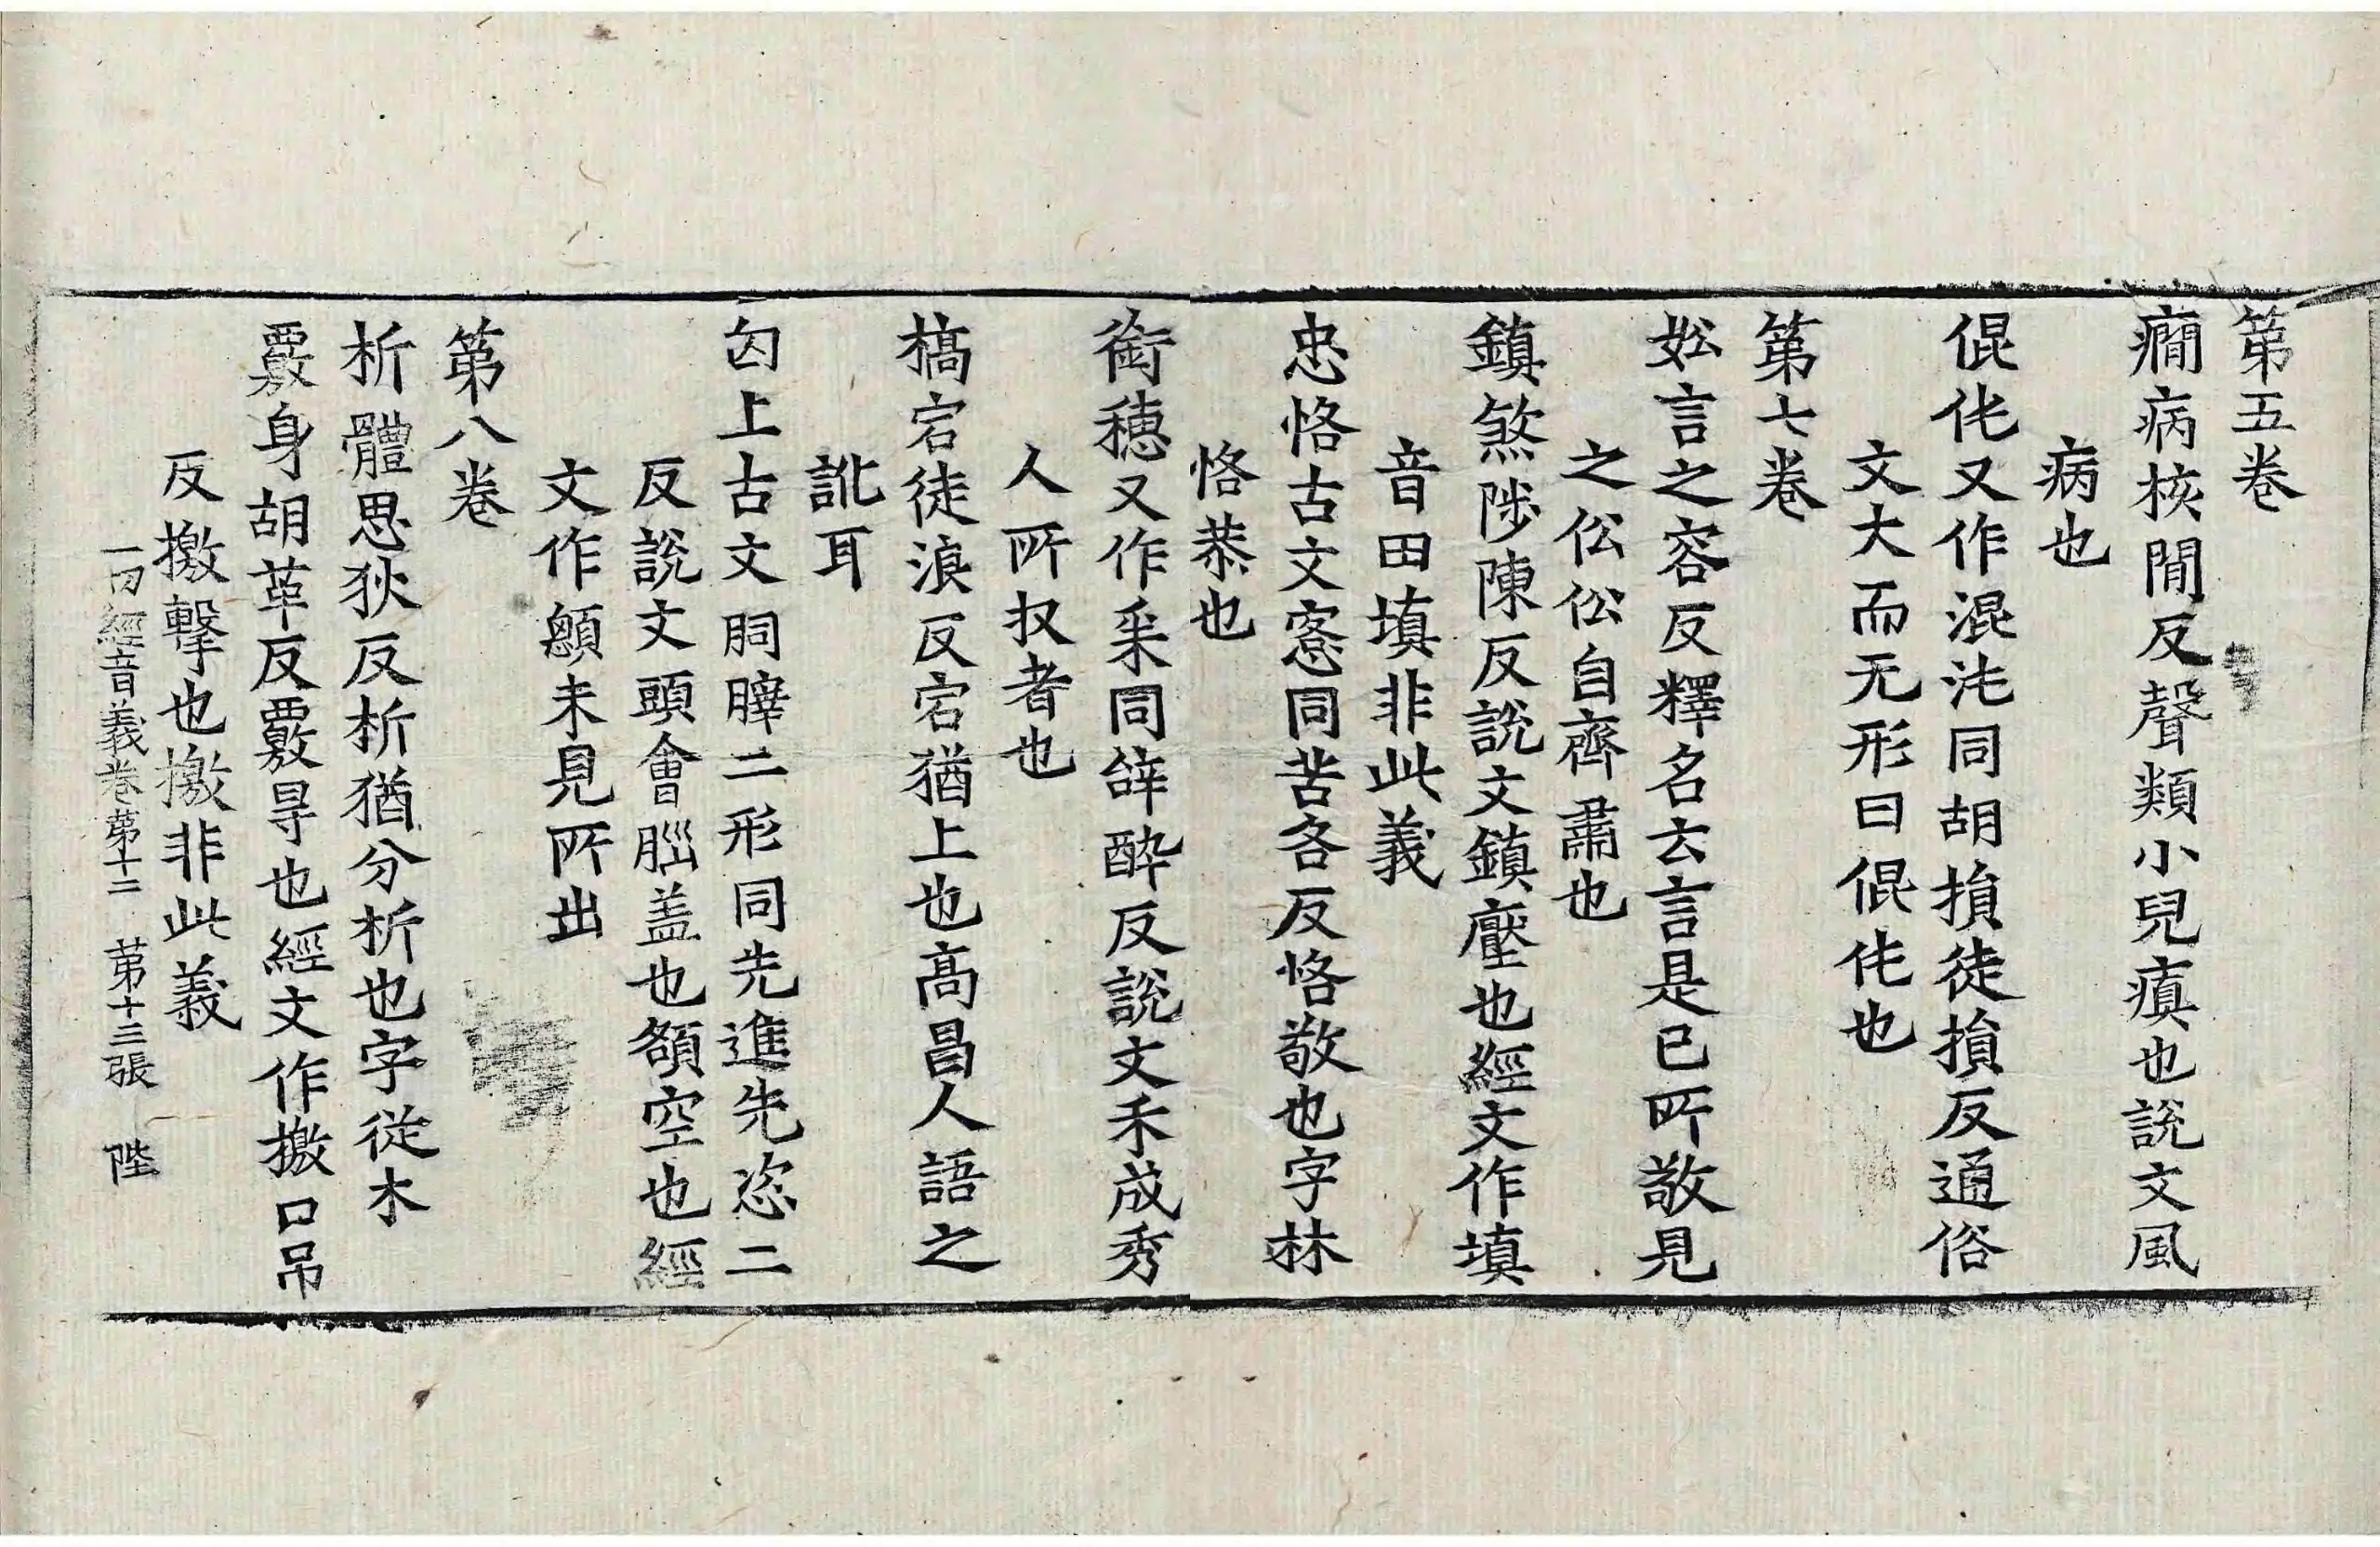 第五卷
癇病核閒反聲類小兒瘨也說文風
病也
倱伅又作混沌同胡損徒損反通俗
文大而无形曰倱伅也
第七卷
妐言之容反釋名云言是已所敬見
之伀伀自齊肅也
鎮煞陟陳反說文鎮壓也經文作填
音田填非此義
忠恪古文愙同苦各反恪敬也字林
恪恭也
銜穗又作采同辞醉反說文禾成秀
人所収者也
槁宕徒浪反宕猶上也高昌人語之
訛耳
囟上古文𦛁䏹二形同先進先恣二
反說文頭會腦盖也額空也經
文作顖未見所出
第八卷
析體思狄反析猶分析也字從木
覈身胡革反覈㝵也經文作撽口吊
反撽擊也撽非此義
一切經音義卷苐十二 苐十三張 陛